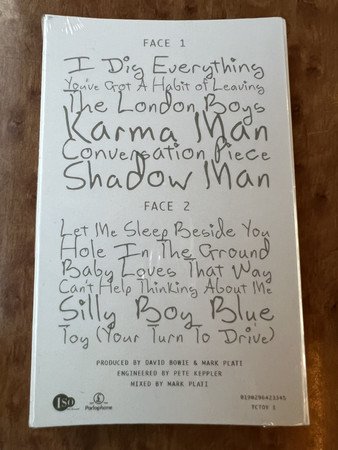 FACE 1
I Dig Everything
You've Got A Habit of Leaving
The London Boys
Karma Man
Conversation Piece
Shadow Man
FACE 2
Let Me Sleep Beside You
Hole In The Ground
Baby Loves That Way
Can't Help Thinking About Me
Silly Boy Blue
Toy (Your Turn To Drive)
PRODUCED BY DAVID BOWIE & MARK PLATI
ENGINEERED BY PETE KEPPLER
MIXED BY MARK PLATI
ISO
Parlophone
0190296423345
TCTOY 1